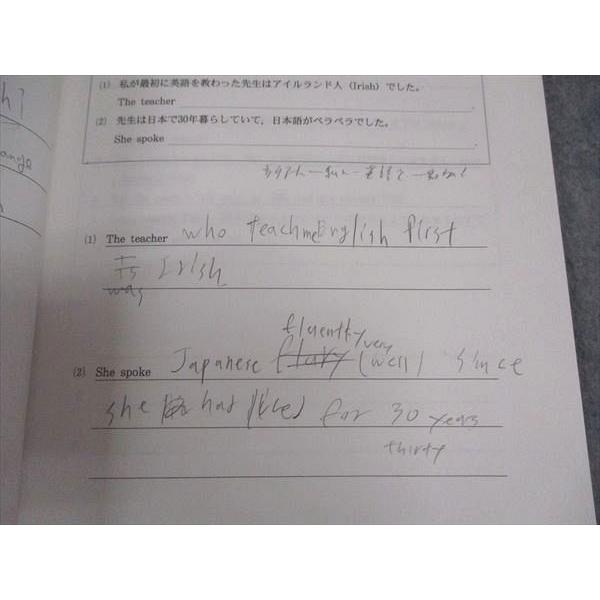 (1) 私が最初に英語を教わった先生はアイルランド人 (Irish) でした。
The teacher
(2) 先生は日本で30年暮らしていて，日本語がペラペラでした。
She spoke
h?
ange
(1) The teacher who teach me English first
Is Irish
was
fluently very
(2) She spoke Japanese (well) since
she had for 30 years
thirty